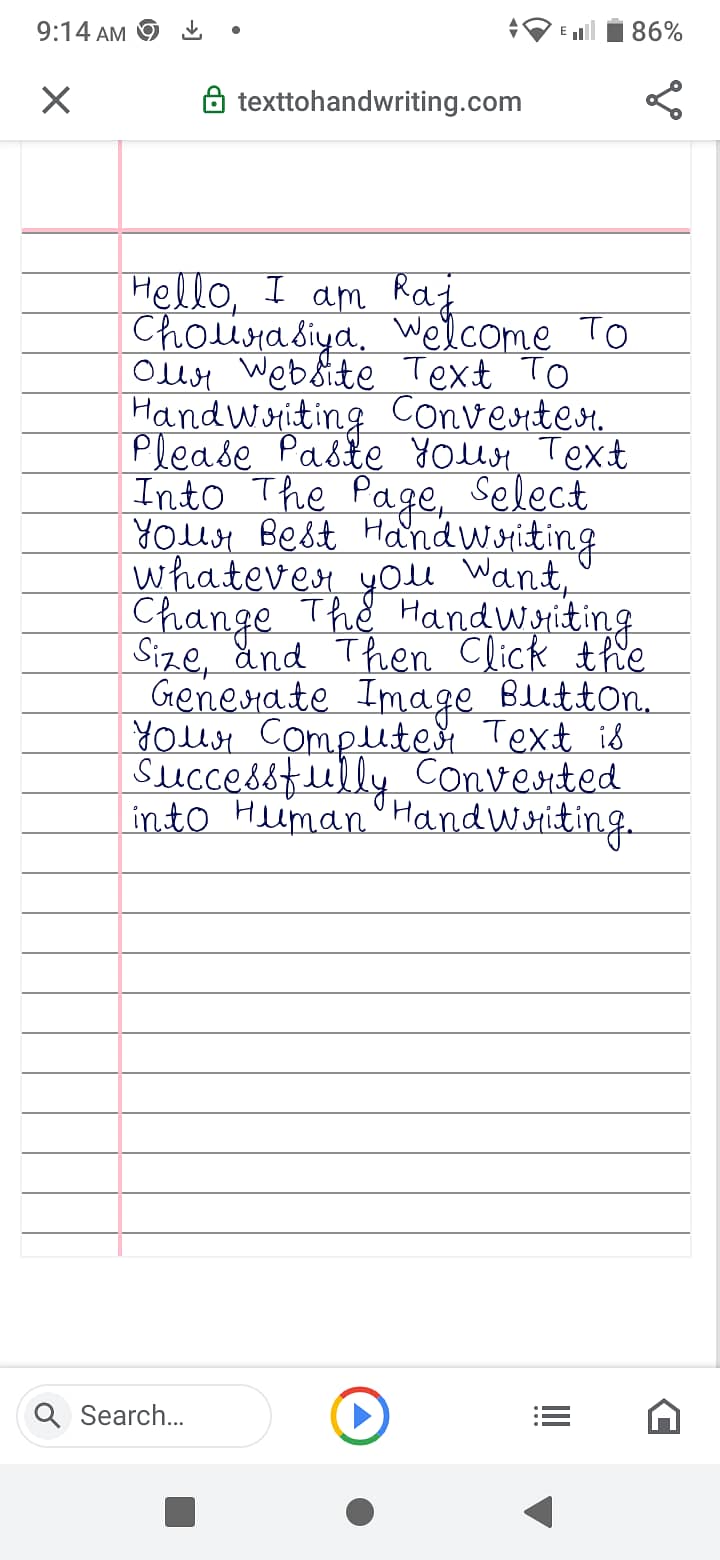 9:14 AM 86%
texttohandwriting.com
Hello, I am Raj
Chourasiya. Welcome To
Our Website Text To
Handwriting Converter.
Please Paste Your Text
Into The Page, Select
Your Best Handwriting
whatever you Want,
Change The Handwriting
Size, and Then Click the
Generate Image Button.
Your Computer Text is
Successfully Converted
into Human Handwriting.
Search...